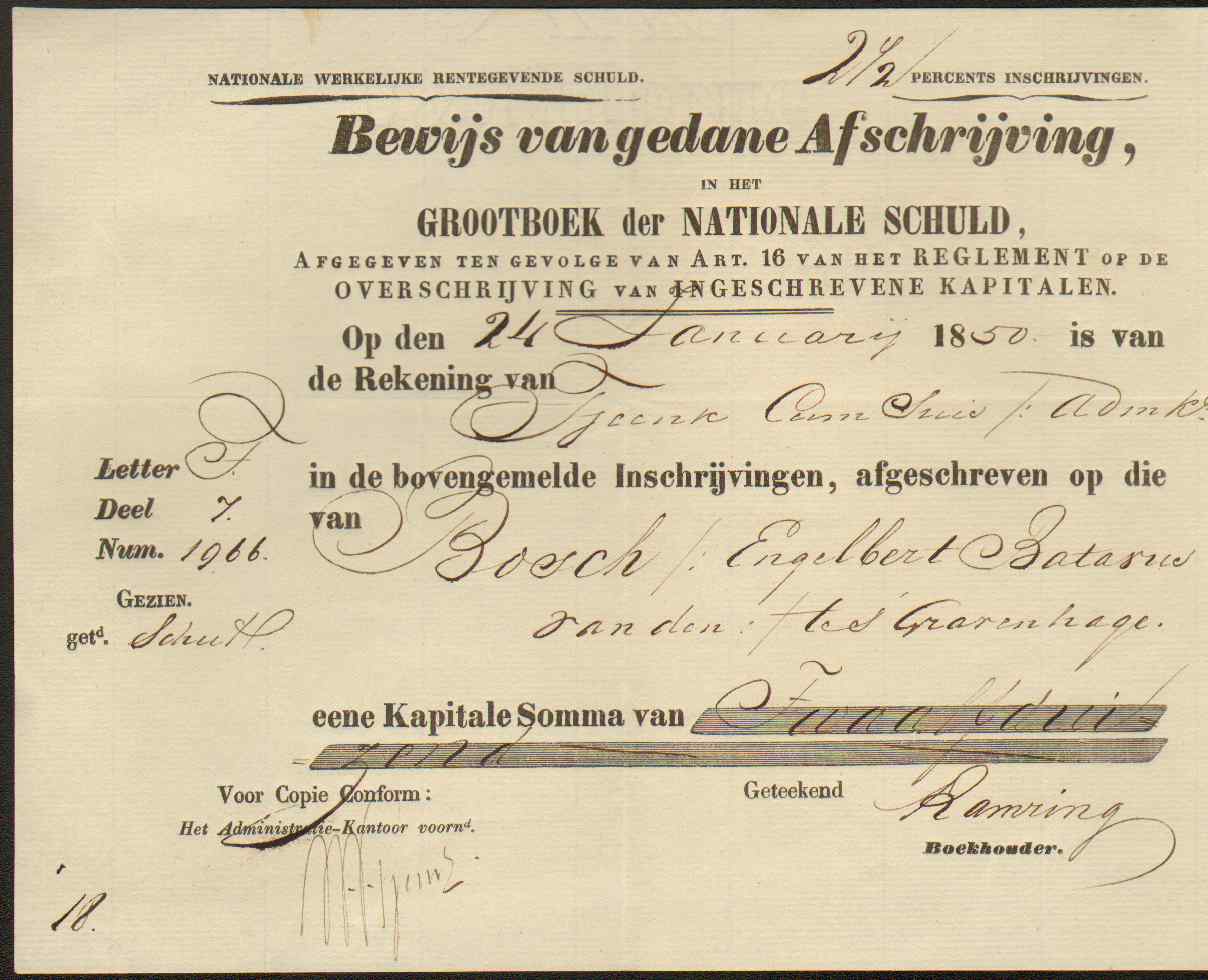 NATIONALE WERKELIJKE RENTEGEVENDE SCHULD. 2 1/2 PERCENTS INSCHRIJVINGEN.
Bewijs van gedane Afschrijving,
IN HET
GROOTBOEK der NATIONALE SCHULD,
AFGEGEVEN TEN GEVOLGE VAN ART. 16 VAN HET REGLEMENT OP DE
OVERSCHRIJVING VAN INGESCHREVENE KAPITALEN.
Op den 24 Januarij 1850. is van
de Rekening van
Tjeenk Cum Suis /: Admkr
Letter F. in de bovengemelde Inschrijvingen, afgeschreven op die
Deel 7. van
Num. 1966. Bosch /: Engelbert Batavus
GEZIEN.
getd. van den :/ te s' Gravenhage.
eene Kapitale Somma van Twaalfdui
zend
Voor Copie Conform: Geteekend Ramring
Het Administratie-Kantoor voornd.
Boekhouder.
18.